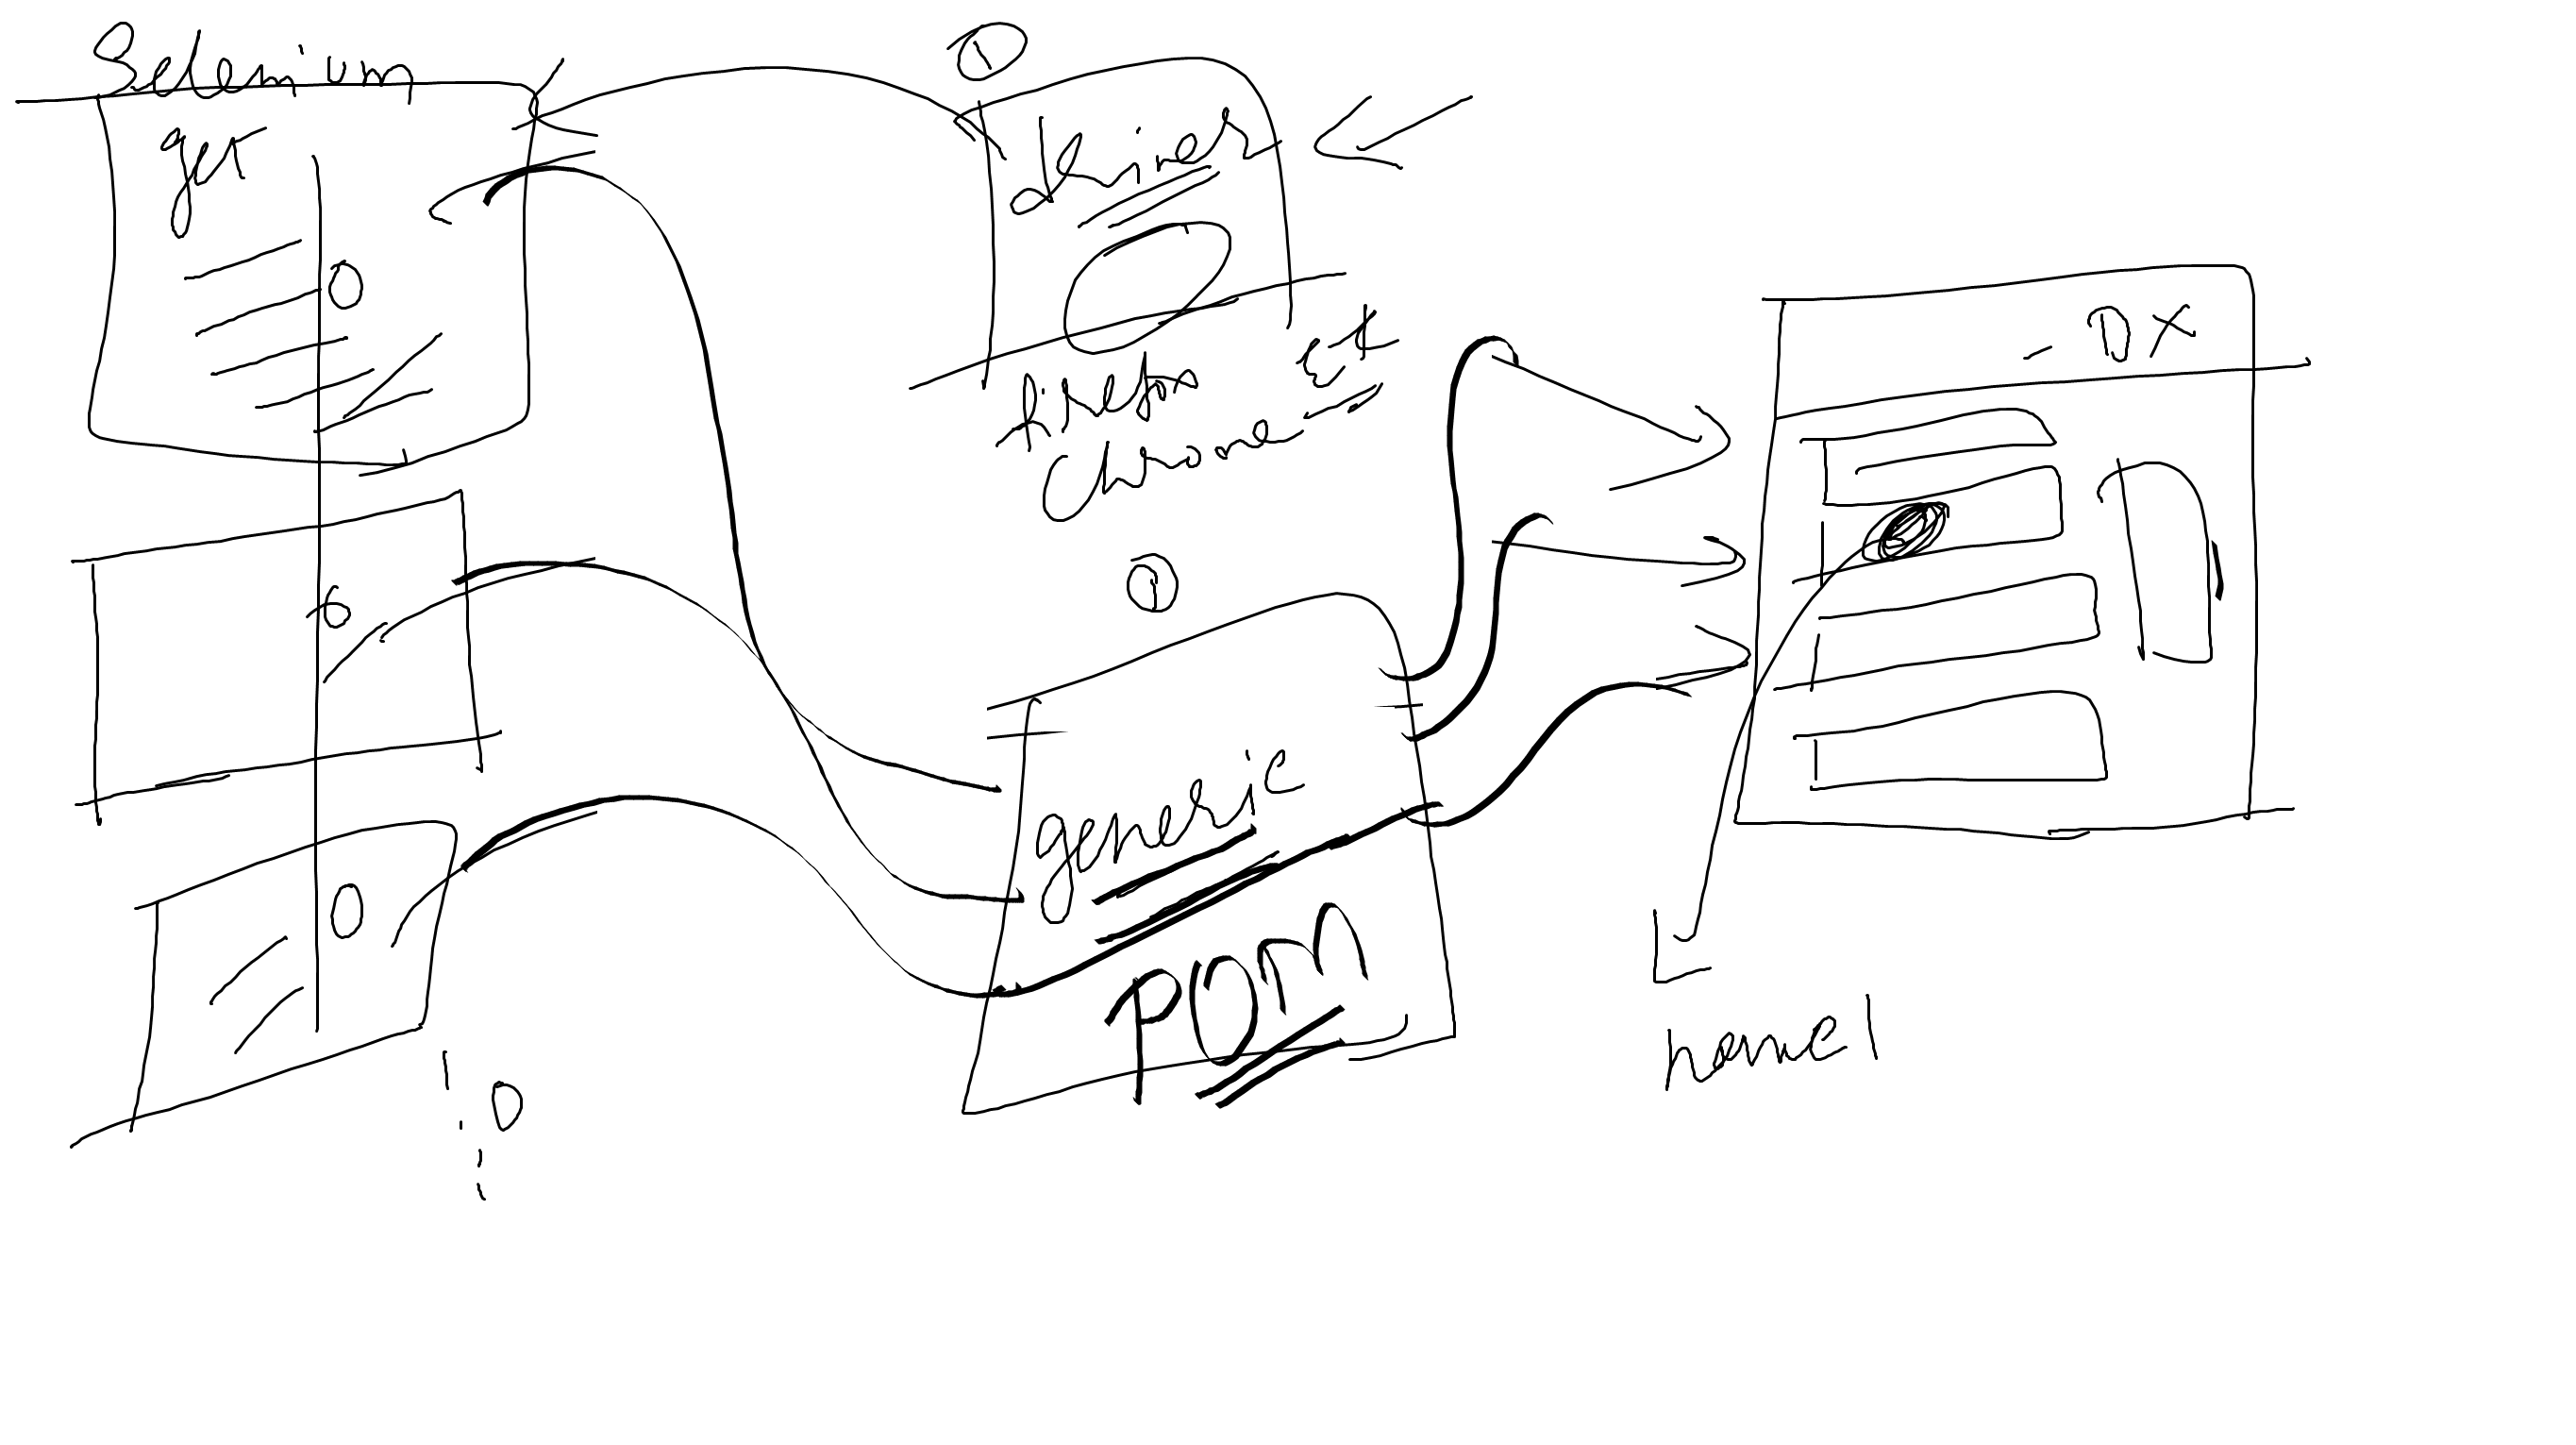 Selenium
get
1
driver
firefox
chrome etc
- D X
1
generic
POM
name1